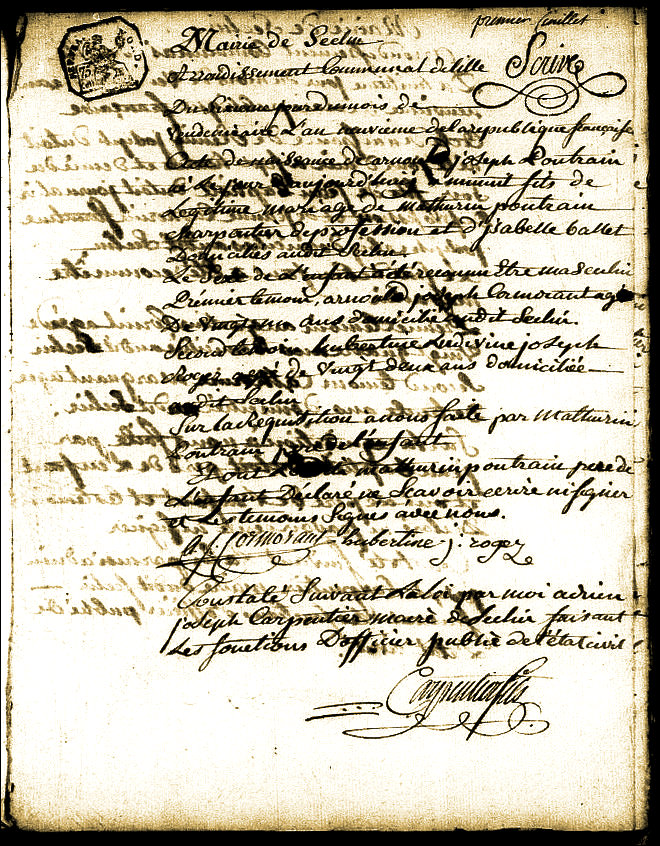 premier feuillet
Mairie de Seclin
Arrondissement Communal de lille Scrive
Du sixieme jour du mois de
Vendemiaire L'an neuvieme de la republique française
Acte de naissance de arnould joseph Poutrain
né le jour d'aujourd'hui a minuit fils de
Legitime mariage de mathurin poutrain
charpentier de profession et d'isabelle ballet
Domiciliés audit Seclin.
Le Sexe de L'enfant a été reconnu Etre masculin
Prémier temoin, arnould joseph Cormorant agé
De Vingt ans domicilié audit Seclin.
Second temoin hubertine Ludivine joseph
Roger agée de Vingt deux ans domiciliée
audit Seclin
Sur la Requisition a nous faite par Mathurin
Poutrain père de l'enfant
Et ont mathurin poutrain pere de
L'enfant Declaré ne Scavoir ecrire ni signer
et Les temoins Signés avec nous.
a. j. Cormorant hubertine j. roger
Constaté Suivant La loi par moi adrien
joseph Carpentier maire de Seclin faisant
Les fonctions D'officier public de l'état civil
Carpentier fils